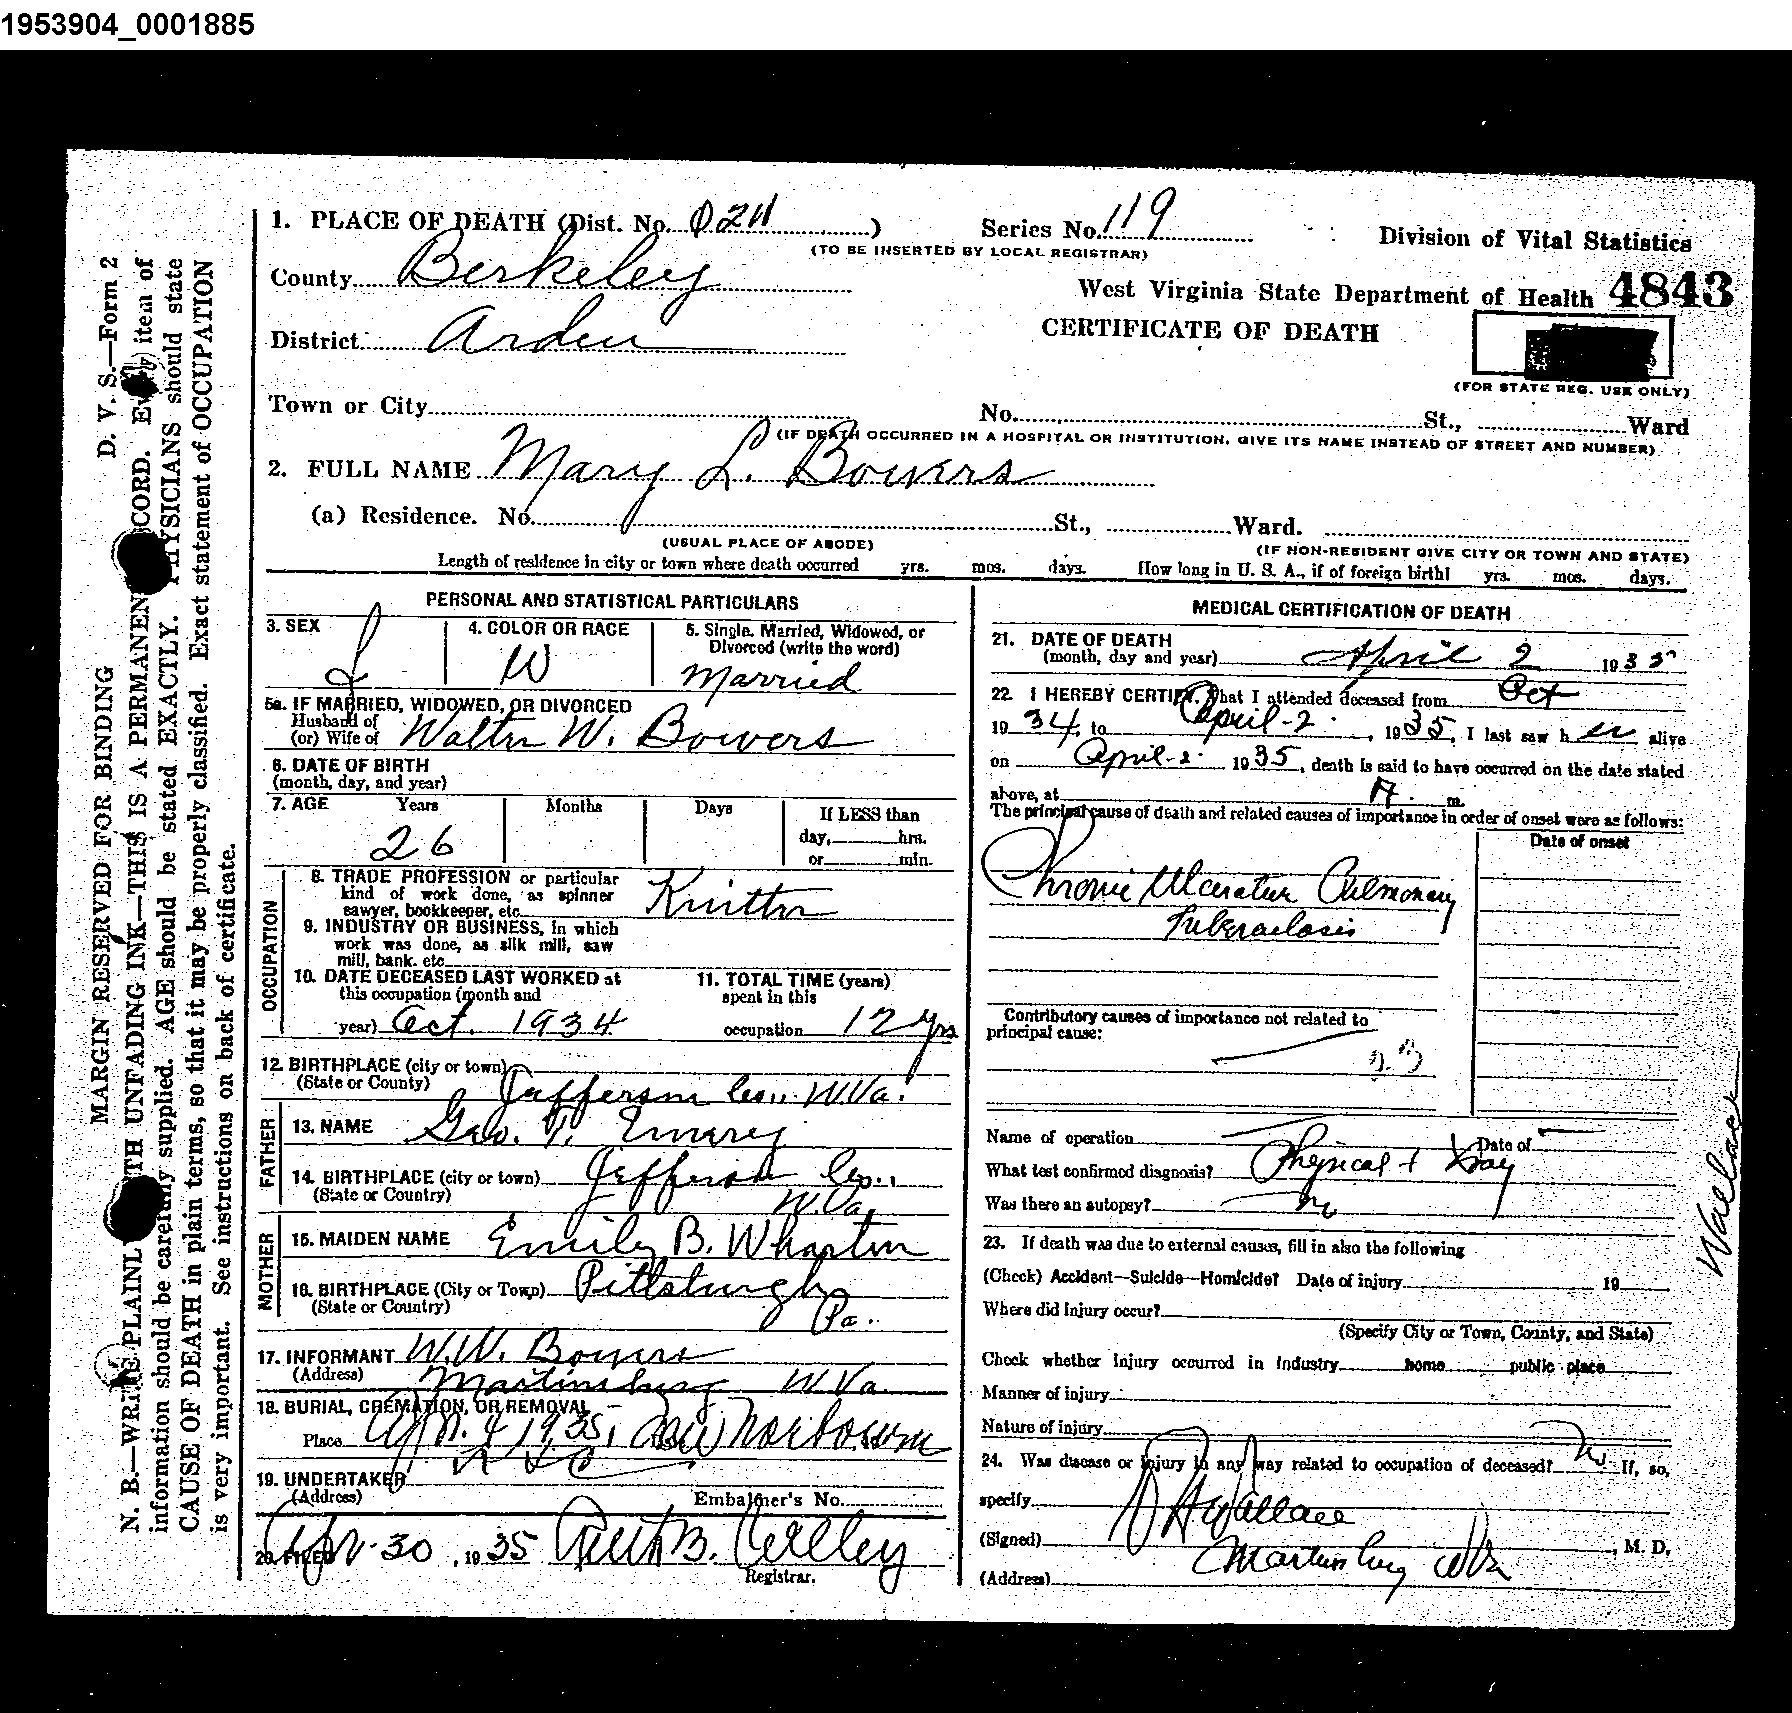 1953904_0001885
1. PLACE OF DEATH (Dist. No. 0211) Series No. 119 Division of Vital Statistics
(TO BE INSERTED BY LOCAL REGISTRAR)
County Berkeley
West Virginia State Department of Health 4843
CERTIFICATE OF DEATH
District Arden
(FOR STATE REG. USE ONLY)
Town or City No. St., Ward
(IF DEATH OCCURRED IN A HOSPITAL OR INSTITUTION, GIVE ITS NAME INSTEAD OF STREET AND NUMBER)
2. FULL NAME Mary L. Bowers
(a) Residence. No. St., Ward.
(USUAL PLACE OF ABODE) (IF NON-RESIDENT GIVE CITY OR TOWN AND STATE)
Length of residence in city or town where death occurred yrs. mos. days. How long in U. S. A., if of foreign birth? yrs. mos. days.
PERSONAL AND STATISTICAL PARTICULARS
3. SEX 4. COLOR OR RACE 5. Single, Married, Widowed, or
Divorced (write the word)
F W Married
5a. IF MARRIED, WIDOWED, OR DIVORCED
Husband of
(or) Wife of Walter W. Bowers
6. DATE OF BIRTH
(month, day, and year)
7. AGE Years Months Days If LESS than
26 day, hrs.
or min.
OCCUPATION
8. TRADE PROFESSION or particular
kind of work done, as spinner
sawyer, bookkeeper, etc. Knitter
9. INDUSTRY OR BUSINESS, in which
work was done, as silk mill, saw
mill, bank. etc.
10. DATE DECEASED LAST WORKED at 11. TOTAL TIME (years)
this occupation (month and spent in this
year) Oct. 1934 occupation 12 yrs
12. BIRTHPLACE (city or town)
(State or County) Jefferson Co., W.Va.
FATHER
13. NAME Geo. T. Emery
14. BIRTHPLACE (city or town) Jefferson Co.,
(State or Country) W.Va.
MOTHER
15. MAIDEN NAME Emily B. Wharton
16. BIRTHPLACE (City or Town) Pittsburgh
(State or Country) Pa.
17. INFORMANT W.W. Bowers
(Address) Martinsburg W Va.
18. BURIAL, CREMATION, OR REMOVAL
Place Apr. 4, 1935,
19. UNDERTAKER
(Address) Embalmer's No.
20. FILED Apr. 30, 1935 B. Kelley
Registrar.
MEDICAL CERTIFICATION OF DEATH
21. DATE OF DEATH
(month, day and year) April 2 1935
22. I HEREBY CERTIFY, That I attended deceased from Oct
1934, to April-2. , 1935, I last saw her alive
on April-2. 1935, death is said to have occurred on the date stated
above, at A. m.
The principal cause of death and related causes of importance in order of onset were as follows:
Date of onset
Chronic Ulcerative Pulmonary
Tuberculosis
Contributory causes of importance not related to
principal cause:
Name of operation Date of
What test confirmed diagnosis? Physical + Xray
Was there an autopsy? No
23. If death was due to external causes, fill in also the following
(Check) Accident—Suicide—Homicide? Date of injury 19
Where did injury occur?
(Specify City or Town, County, and State)
Check whether injury occurred in industry home public place
Manner of injury
Nature of injury
24. Was disease or injury in any way related to occupation of deceased? No If, so,
specify
(Signed) Wallace, M. D.
(Address) Martinsburg WVa
Wallace
D. V. S.—Form 2
MARGIN RESERVED FOR BINDING
N. B.—WRITE PLAINLY WITH UNFADING INK—THIS IS A PERMANENT RECORD. Every item of
information should be carefully supplied. AGE should be stated EXACTLY. PHYSICIANS should state
CAUSE OF DEATH in plain terms, so that it may be properly classified. Exact statement of OCCUPATION
is very important. See instructions on back of certificate.